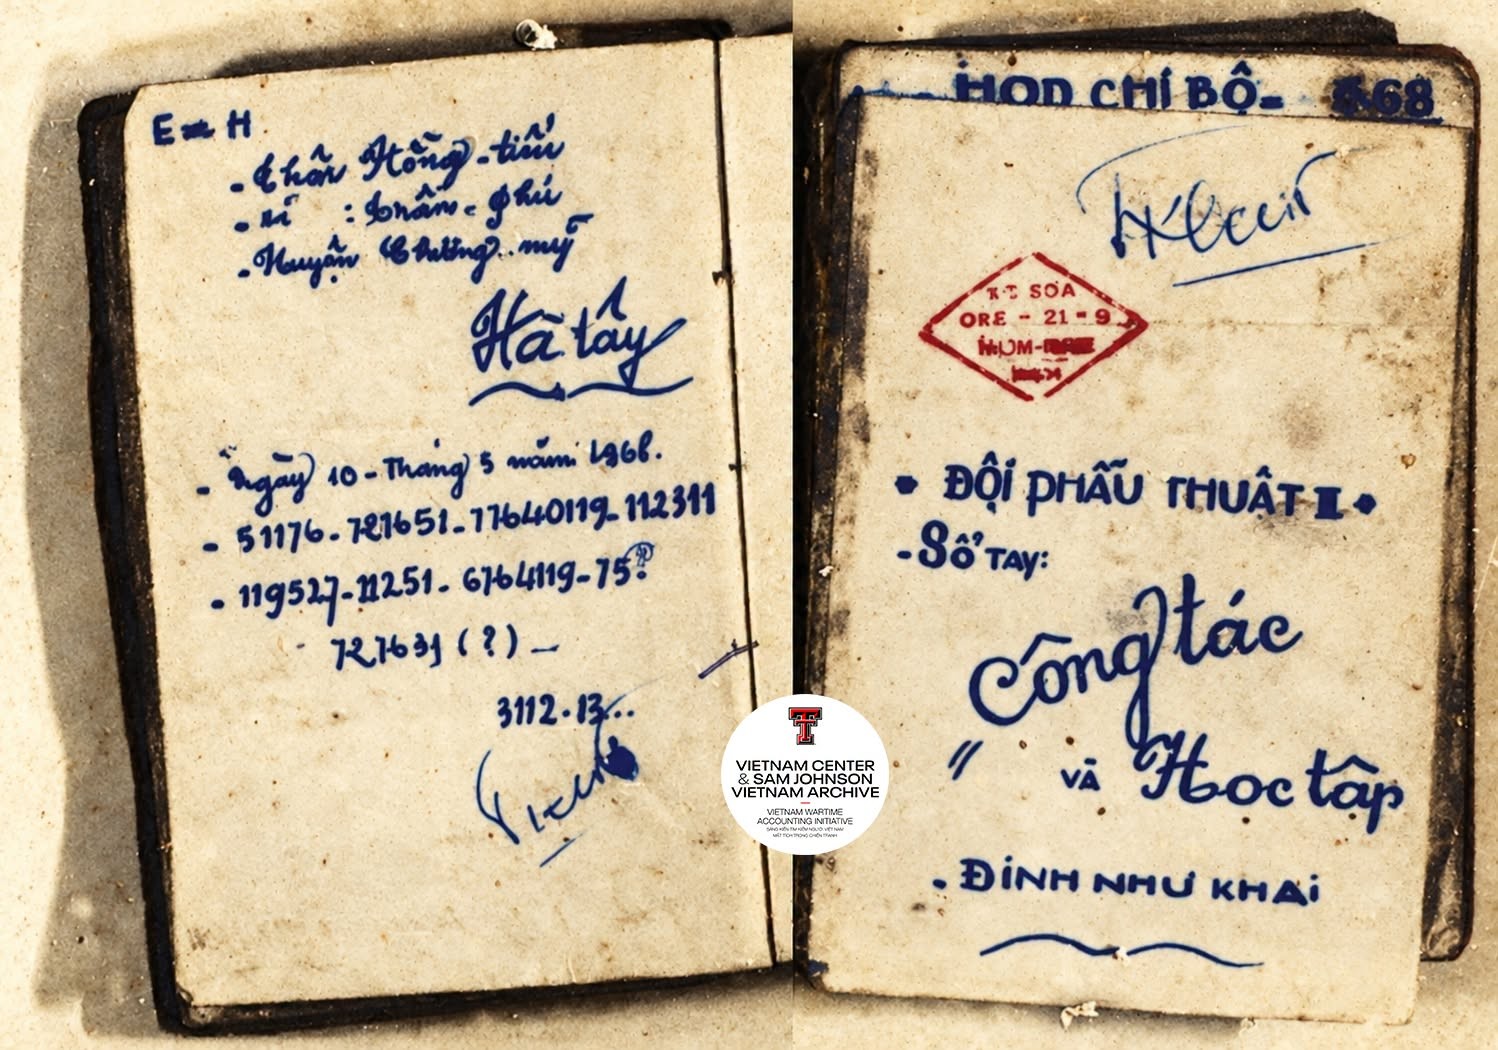 E H
- thôn Hồng-tiến
- xã : trần-phú
- Huyện Chương mỹ
Hà tây
- Ngày 10-Tháng 5 năm 1968.
- 51176-721651-77640119-112311
- 119527-11251-6764119-75?
727631 (?) -
3112.13...
HOD CHI BỘ- 68
SOA
ORE - 21 - 9
• ĐỘI PHẪU THUẬT I •
- Sổ TAY:
Công tác
" và Học tập
. ĐINH NHƯ KHAI
VIETNAM CENTER
& SAM JOHNSON
VIETNAM ARCHIVE
VIETNAM WARTIME
ACCOUNTING INITIATIVE
SÁNG KIẾN TÌM KIẾM NGƯỜI VIỆT NAM
MẤT TÍCH TRONG CHIẾN TRANH